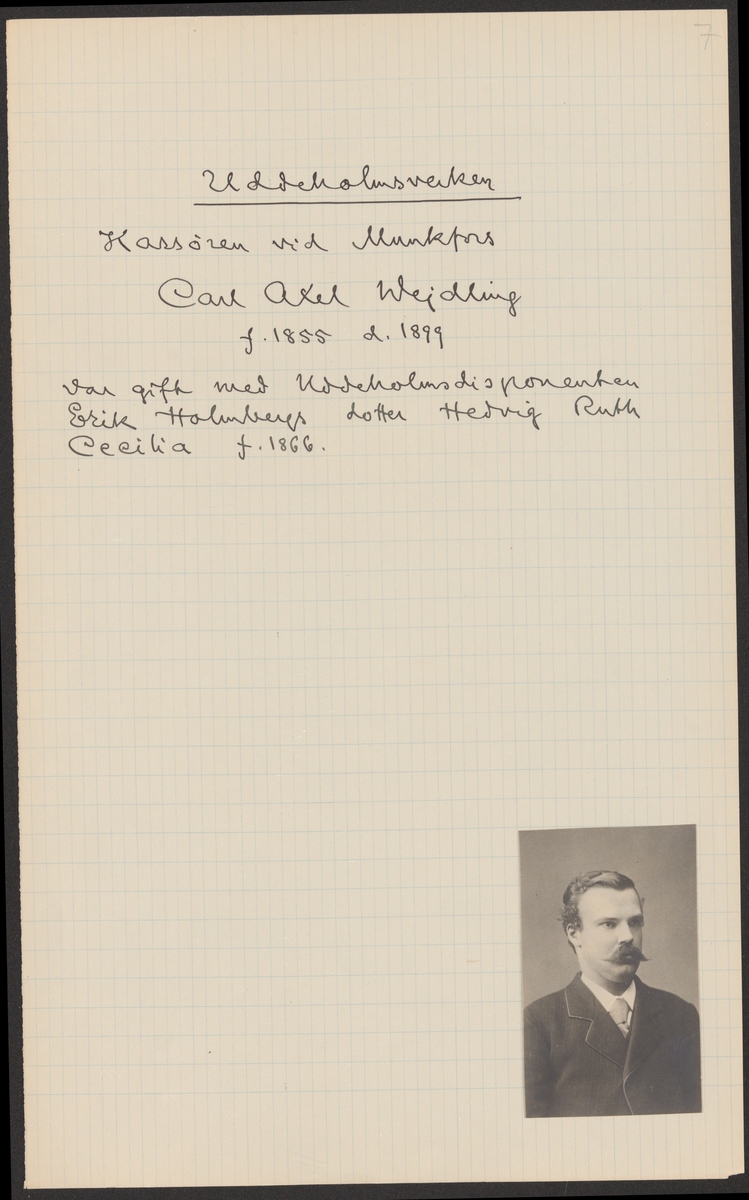 7
Uddeholmsverken
Kassören vid Munkfors
Carl Axel Wejdling
f. 1855 d. 1899
var gift med Uddeholmsdisponenten
Erik Holmbergs dotter Hedvig Ruth
Cecilia f. 1866.